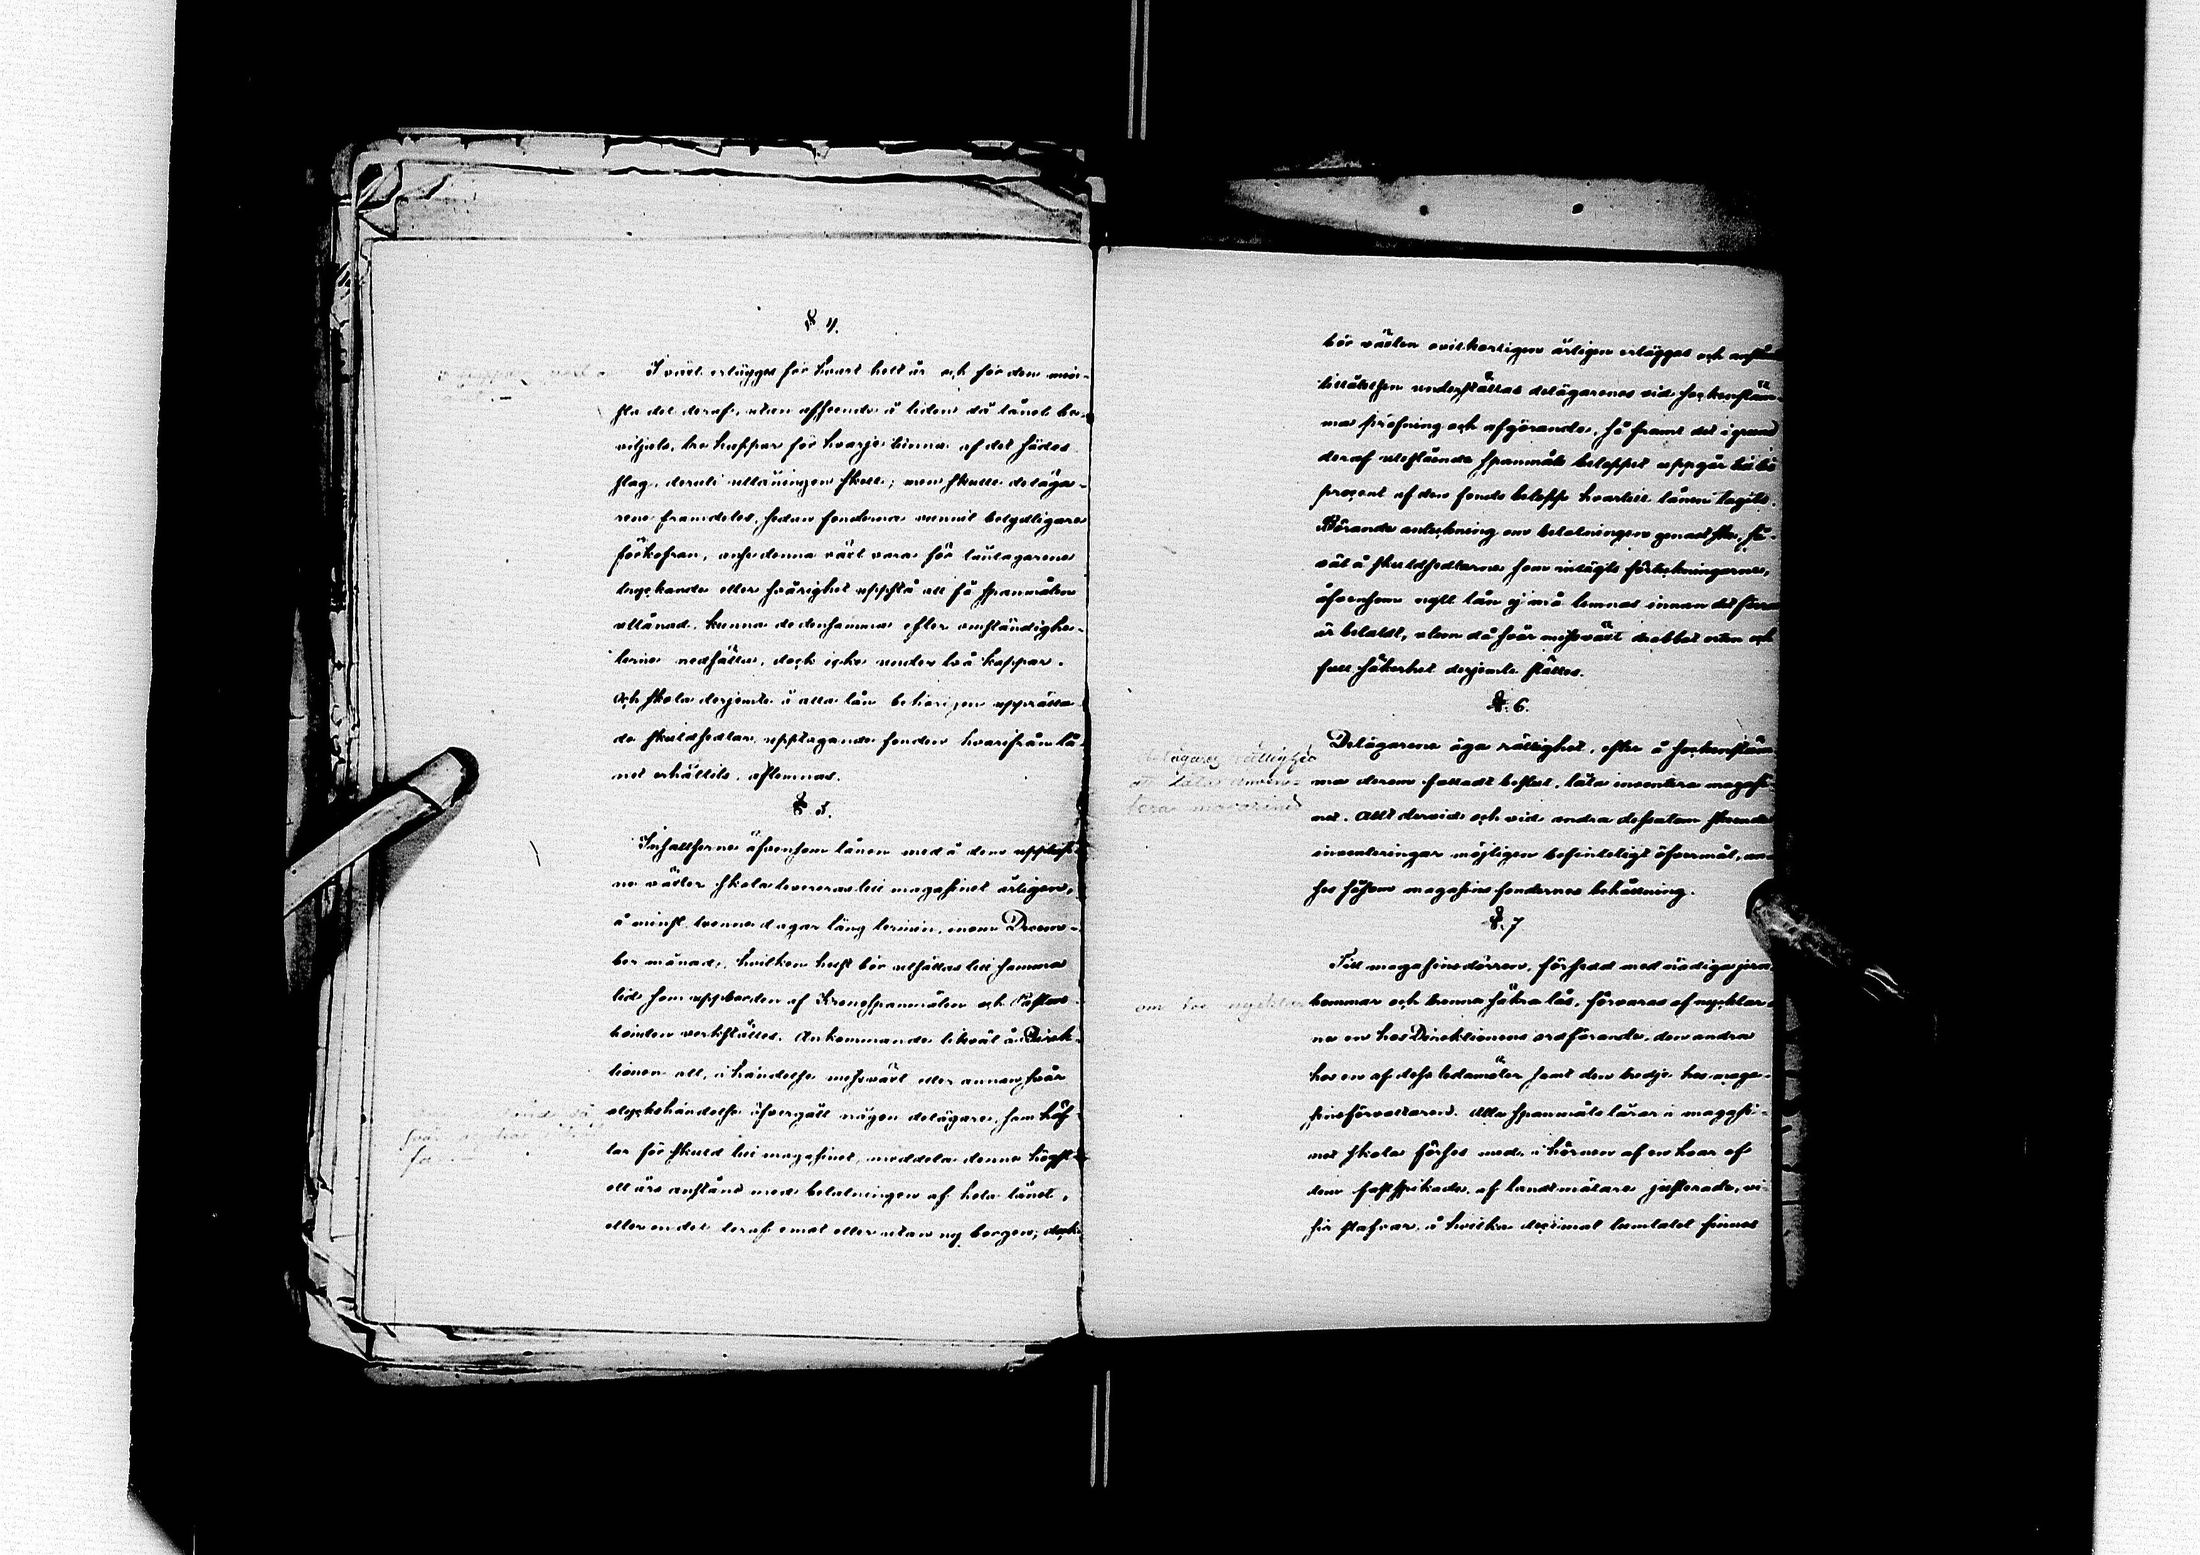 § 4.
I växt erlägges för hvart helt år och för den min-
sta del deraf, utan afseende å tiden då lånet be-
viljats, tre kappar för hvarje tunna af det sädes
slag, deruti utlåningen skett; men skulle deläga-
rene framdeles, sedan fonderna vunnit betydligare
förkofran, anse denna växt vara för låntagarena
tryckande eller svårighet uppstå att få spanmålen
utlånad, kunna de densamma efter omständighe-
terna nedsätta, dock icke under två kappar.
Och skola derjemte å alla lån behörigen upprätta-
de skuldsedlar, upptagande fonden hvarifrån lå-
net erhållits, aflemnas.
§ 5.
Insatserne äfvensom lånen med å dem upplupne
växter skola levereras till magasinet årligen,
å minst tvenne dagar lång termin, inom Decem-
ber månad, hvilken helst bör utsättas till samma
tid som uppbörden af Kronospanmålen och
verkställes. Ankommande likväl å Direk-
tionen att, i händelse missväxt eller annan svår
olyckshändelse öfvergått någon delägare, som häf-
tar för skuld till magasinet, meddela denna högst
ett års anstånd med betalningen af hela lånet,
eller en del deraf emot eller utan ny borgen; dock
bör växten ovilkorligen årligen erlägges och
tillåtelsen underställas delägarenes vid sockenstäm-
ma pröfning och afgörande, så framt det i grund
deraf utestående spanmåls beloppet uppgår till
procent af den fonds belopp hvartill lånen tagits.
Börande anteckning om betalningen genast ske, så-
väl å skuldsedlarne som intagts förteckningarne,
äfvensom nytt lån ej må lemnas innan det förra
är betaldt, utom då svår missväxt drabbat orten och
full säkerhet derjemte ställes.
§. 6.
Delägarene äga rättighet, efter å sockenstäm-
ma derom fattadt beslut, låta inventera magasi-
net. Allt dervid och vid andra dessutom skeende
inventeringar möjligen befinteligt öfvermål, an-
ses såsom magasins fondernes behållning.
delägares rättighet
att låta inven-
tera magasinet
§. 7
Till magasinsdörren, försedd med nödiga jern-
bommar och trenne säkra lås, förvaras af nycklar-
ne en hos Direktionens ordförande, den andra
hos en af dess ledamöter samt den tredje hos maga-
sinsförvaltaren. Alla spanmåls lårar i magasi-
net skola förses med, i hörnen af en hvar af
dem fastspikade, af landtmätare justerade, vi-
sir stafvar, å hvilka decimal tunntalet finnes
om tre nycklar